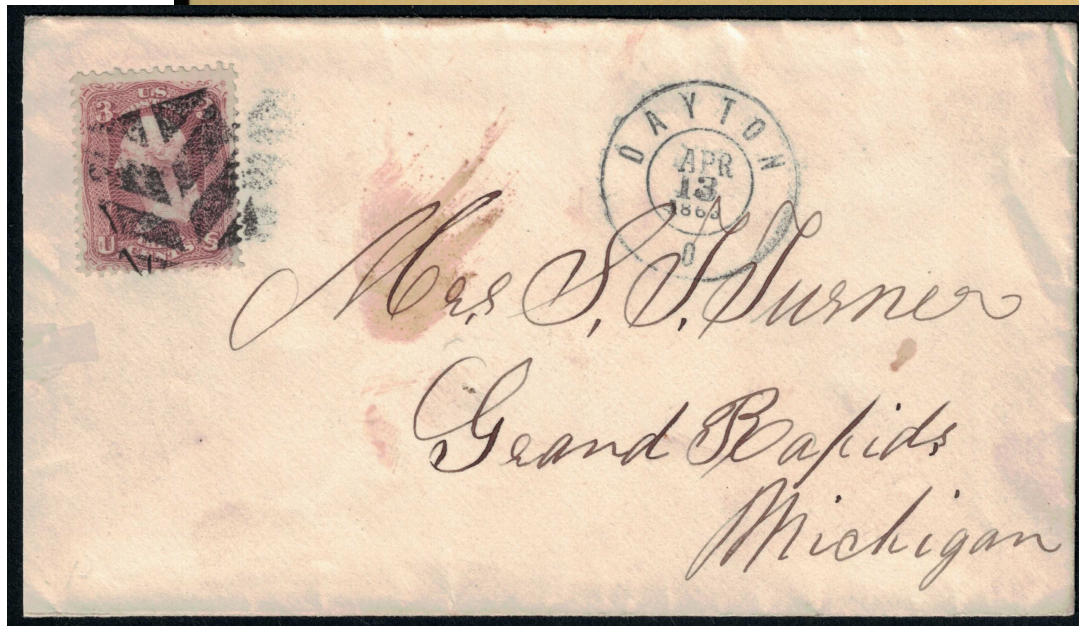 U.S.
3 3
U S
DAYTON
APR
13
O
Mrs. S. S. Turner
Grand Rapids
Michigan